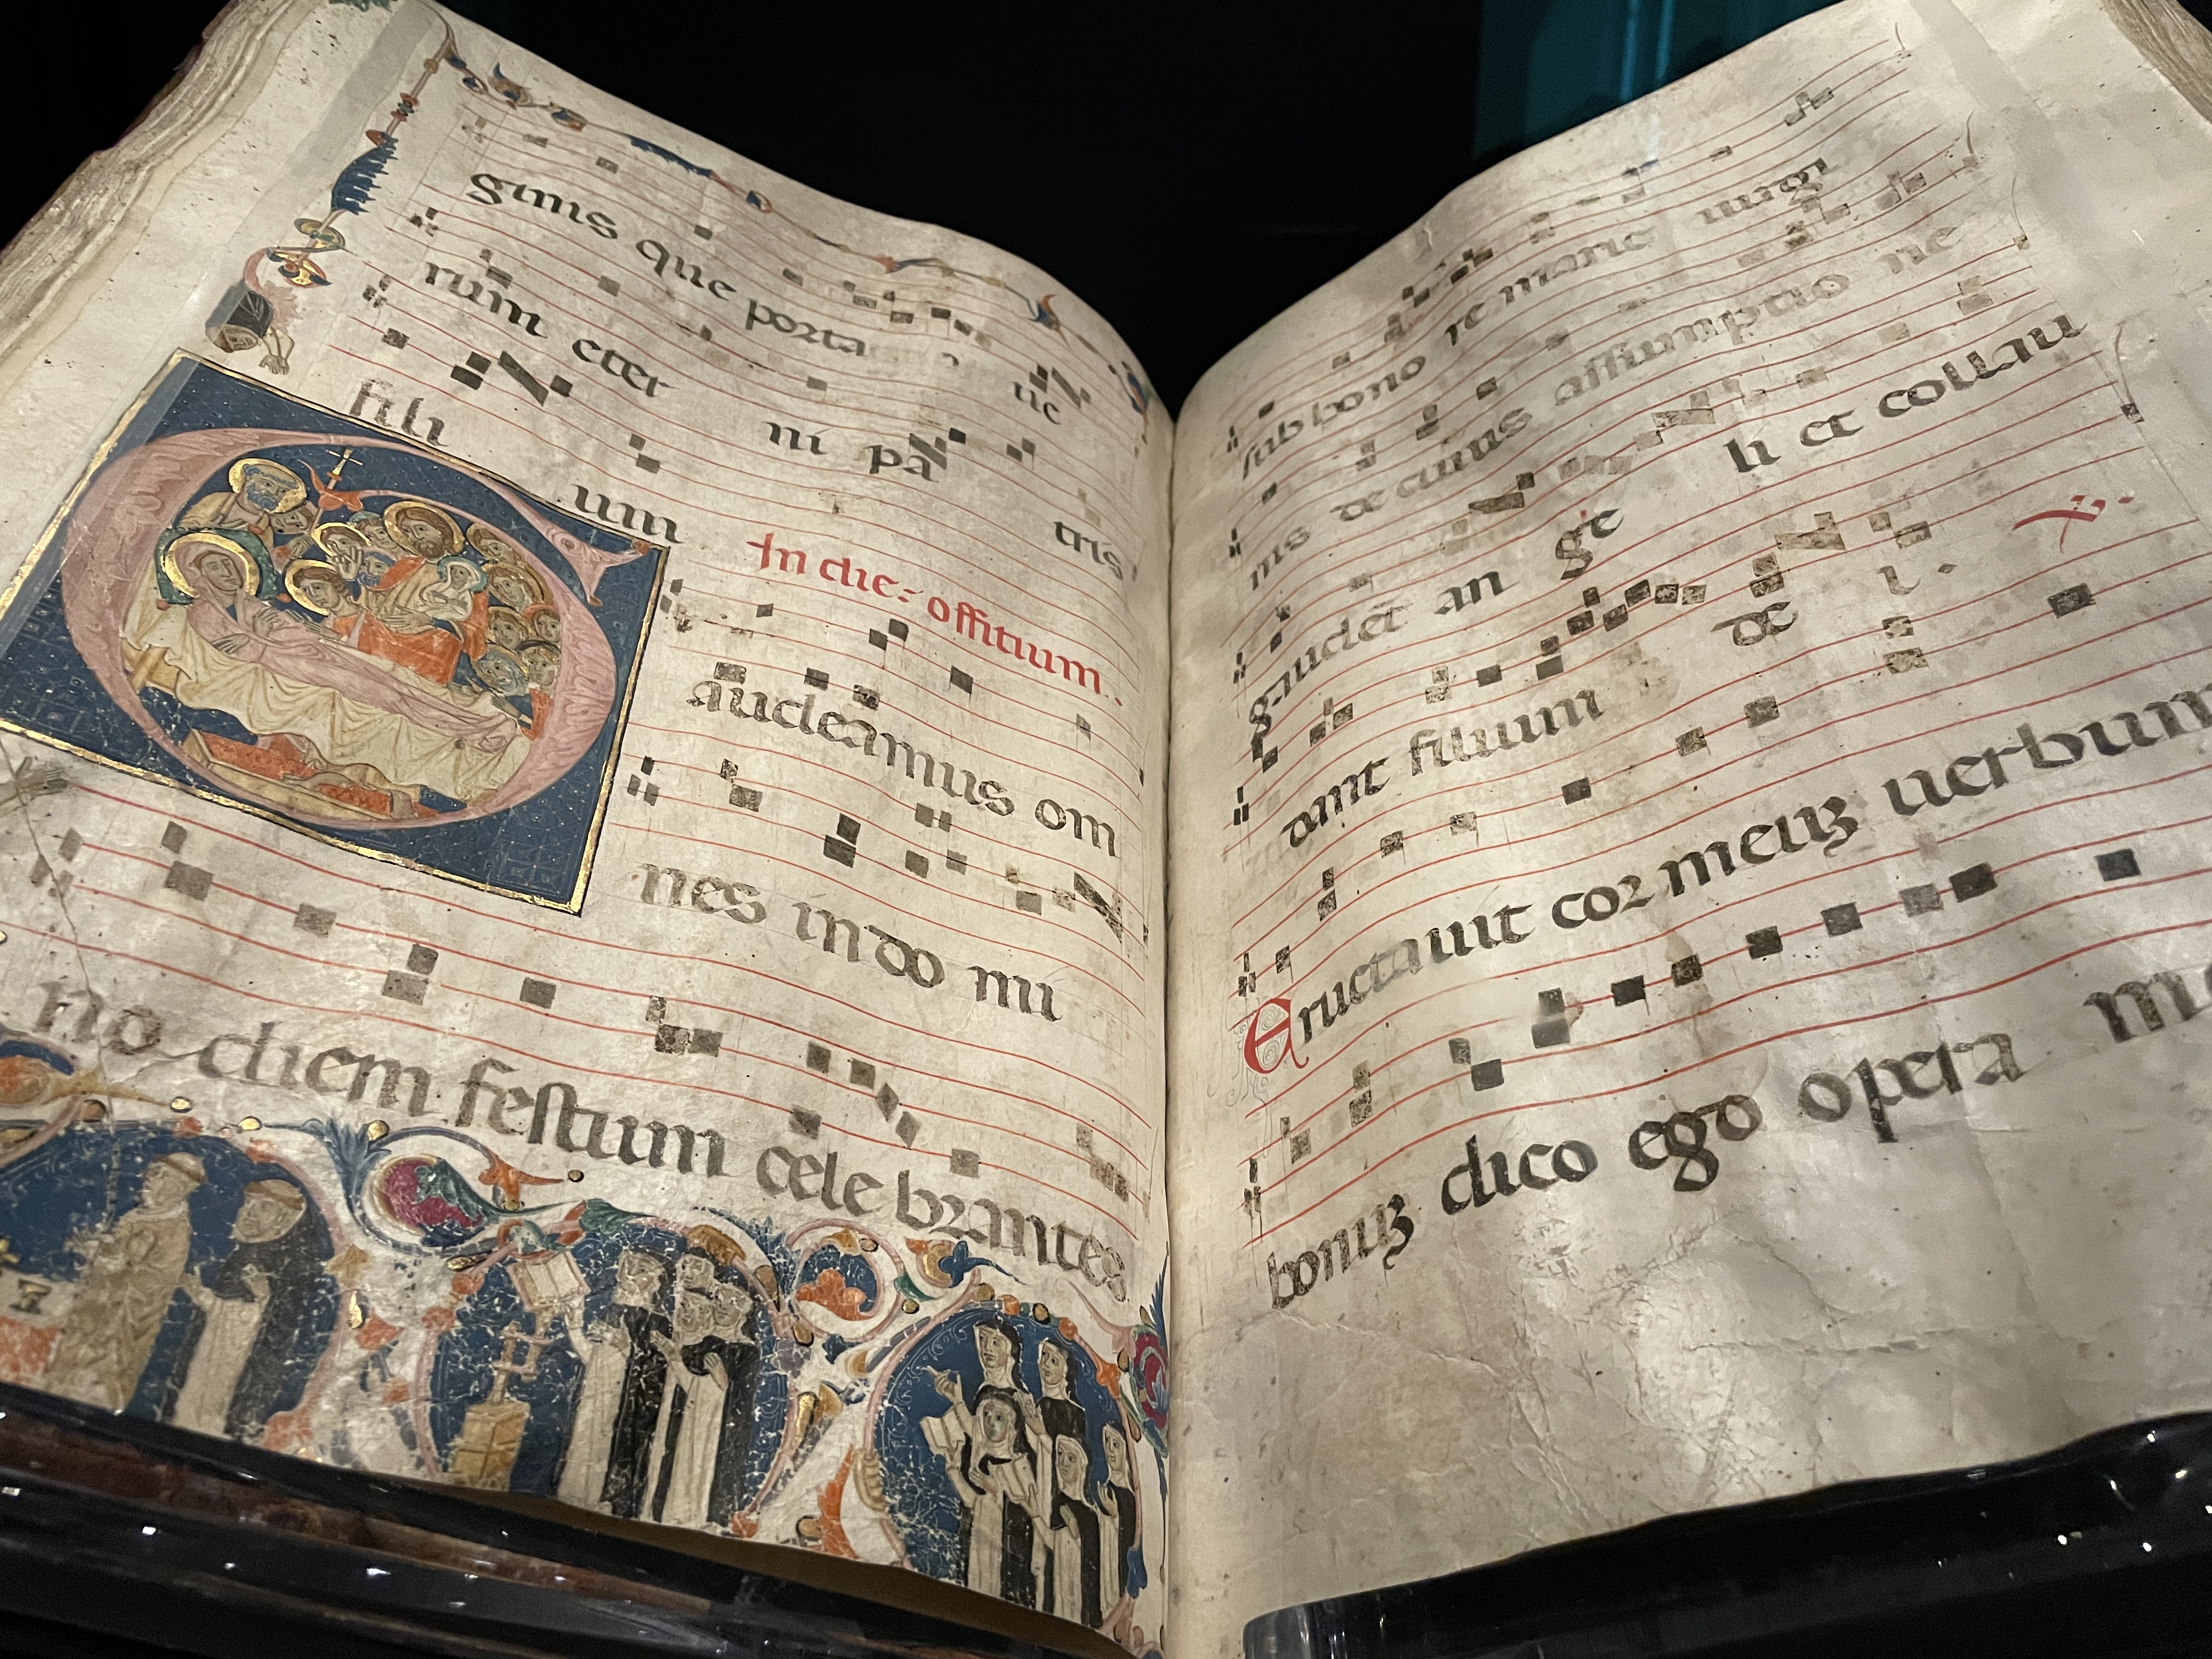 ginis que porta ue
rum eter ni pa tris
fili um
In die: offitium.
audeamus om
nes in do mi
no diem festum cele brantes
sub hono re marie uirgi
nis de cuius assumptio ne
gaudet an ge li et collau
dant filium de i. V.
Eructauit cor meuʒ uerbum
bonuʒ dico ego opera